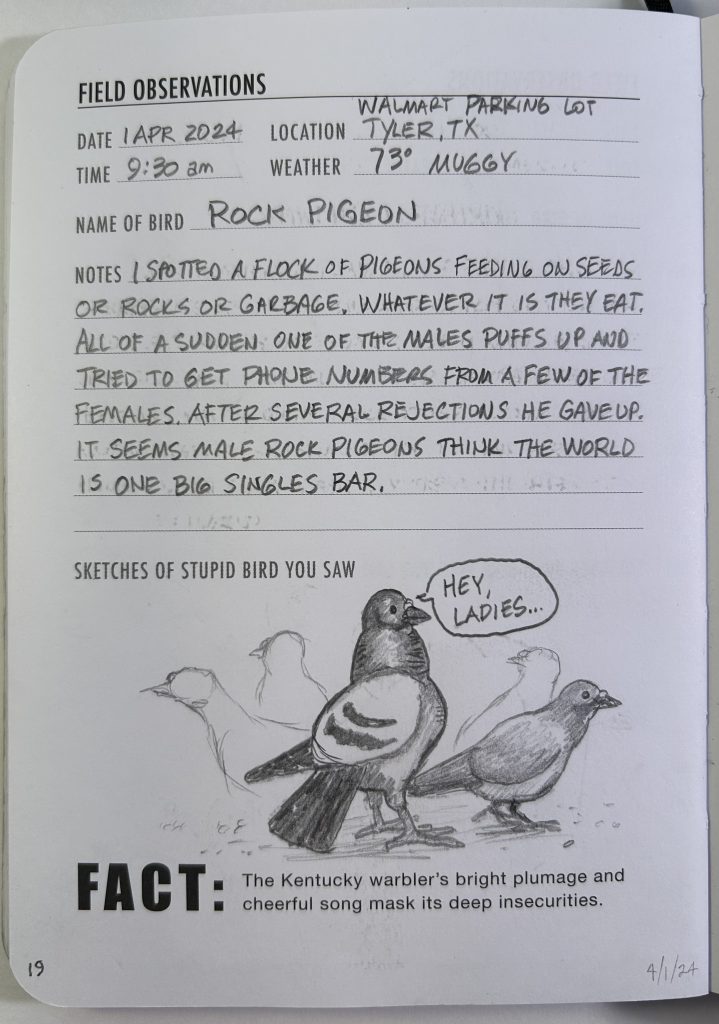 FIELD OBSERVATIONS
WALMART PARKING LOT
DATE 1 APR 2024 LOCATION TYLER, TX
TIME 9:30 am WEATHER 73° MUGGY
NAME OF BIRD ROCK PIGEON
NOTES I SPOTTED A FLOCK OF PIGEONS FEEDING ON SEEDS
OR ROCKS OR GARBAGE. WHATEVER IT IS THEY EAT.
ALL OF A SUDDEN ONE OF THE MALES PUFFS UP AND
TRIED TO GET PHONE NUMBERS FROM A FEW OF THE
FEMALES. AFTER SEVERAL REJECTIONS HE GAVE UP.
IT SEEMS MALE ROCK PIGEONS THINK THE WORLD
IS ONE BIG SINGLES BAR.
SKETCHES OF STUPID BIRD YOU SAW
HEY,
LADIES...
FACT: The Kentucky warbler's bright plumage and
cheerful song mask its deep insecurities.
19
4/1/24